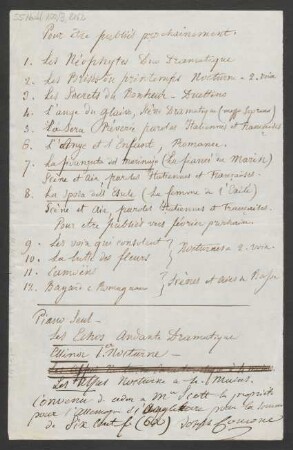 Pour être publié prochainement.
1. Les Néophytes Duo Dramatique
2. Les printemps Nocturne à 2 voix
3. Les Secrets du Bonheur — Duettino
4. L'ange de gloire, Scène Dramatique
5. La Sera (Rêverie) paroles Italiennes et Françaises
6. L'Ange et l'Enfant, Romance
7. La del Marinajo (La fiancée du Marin)
Scène et air, paroles Italiennes et Françaises.
8. La Sposa dell' Esule (La femme de l'Exilé)
Scène et air, paroles Italiennes et Françaises.
Pour être publié vers février prochain
9. Les voix qui consolent
10. La lutte des fleurs
Nocturnes à 2 voix
11.
12.
Scènes et airs de Basse
Piano Seul —
Les Echos Andante Dramatique
1er Nocturne —
Les Nocturne
Convenu de céder à Mr Scott la propriété
pour l'Allemagne et Angleterre pour la somme
de Six Cent f (600) Joseph Concone